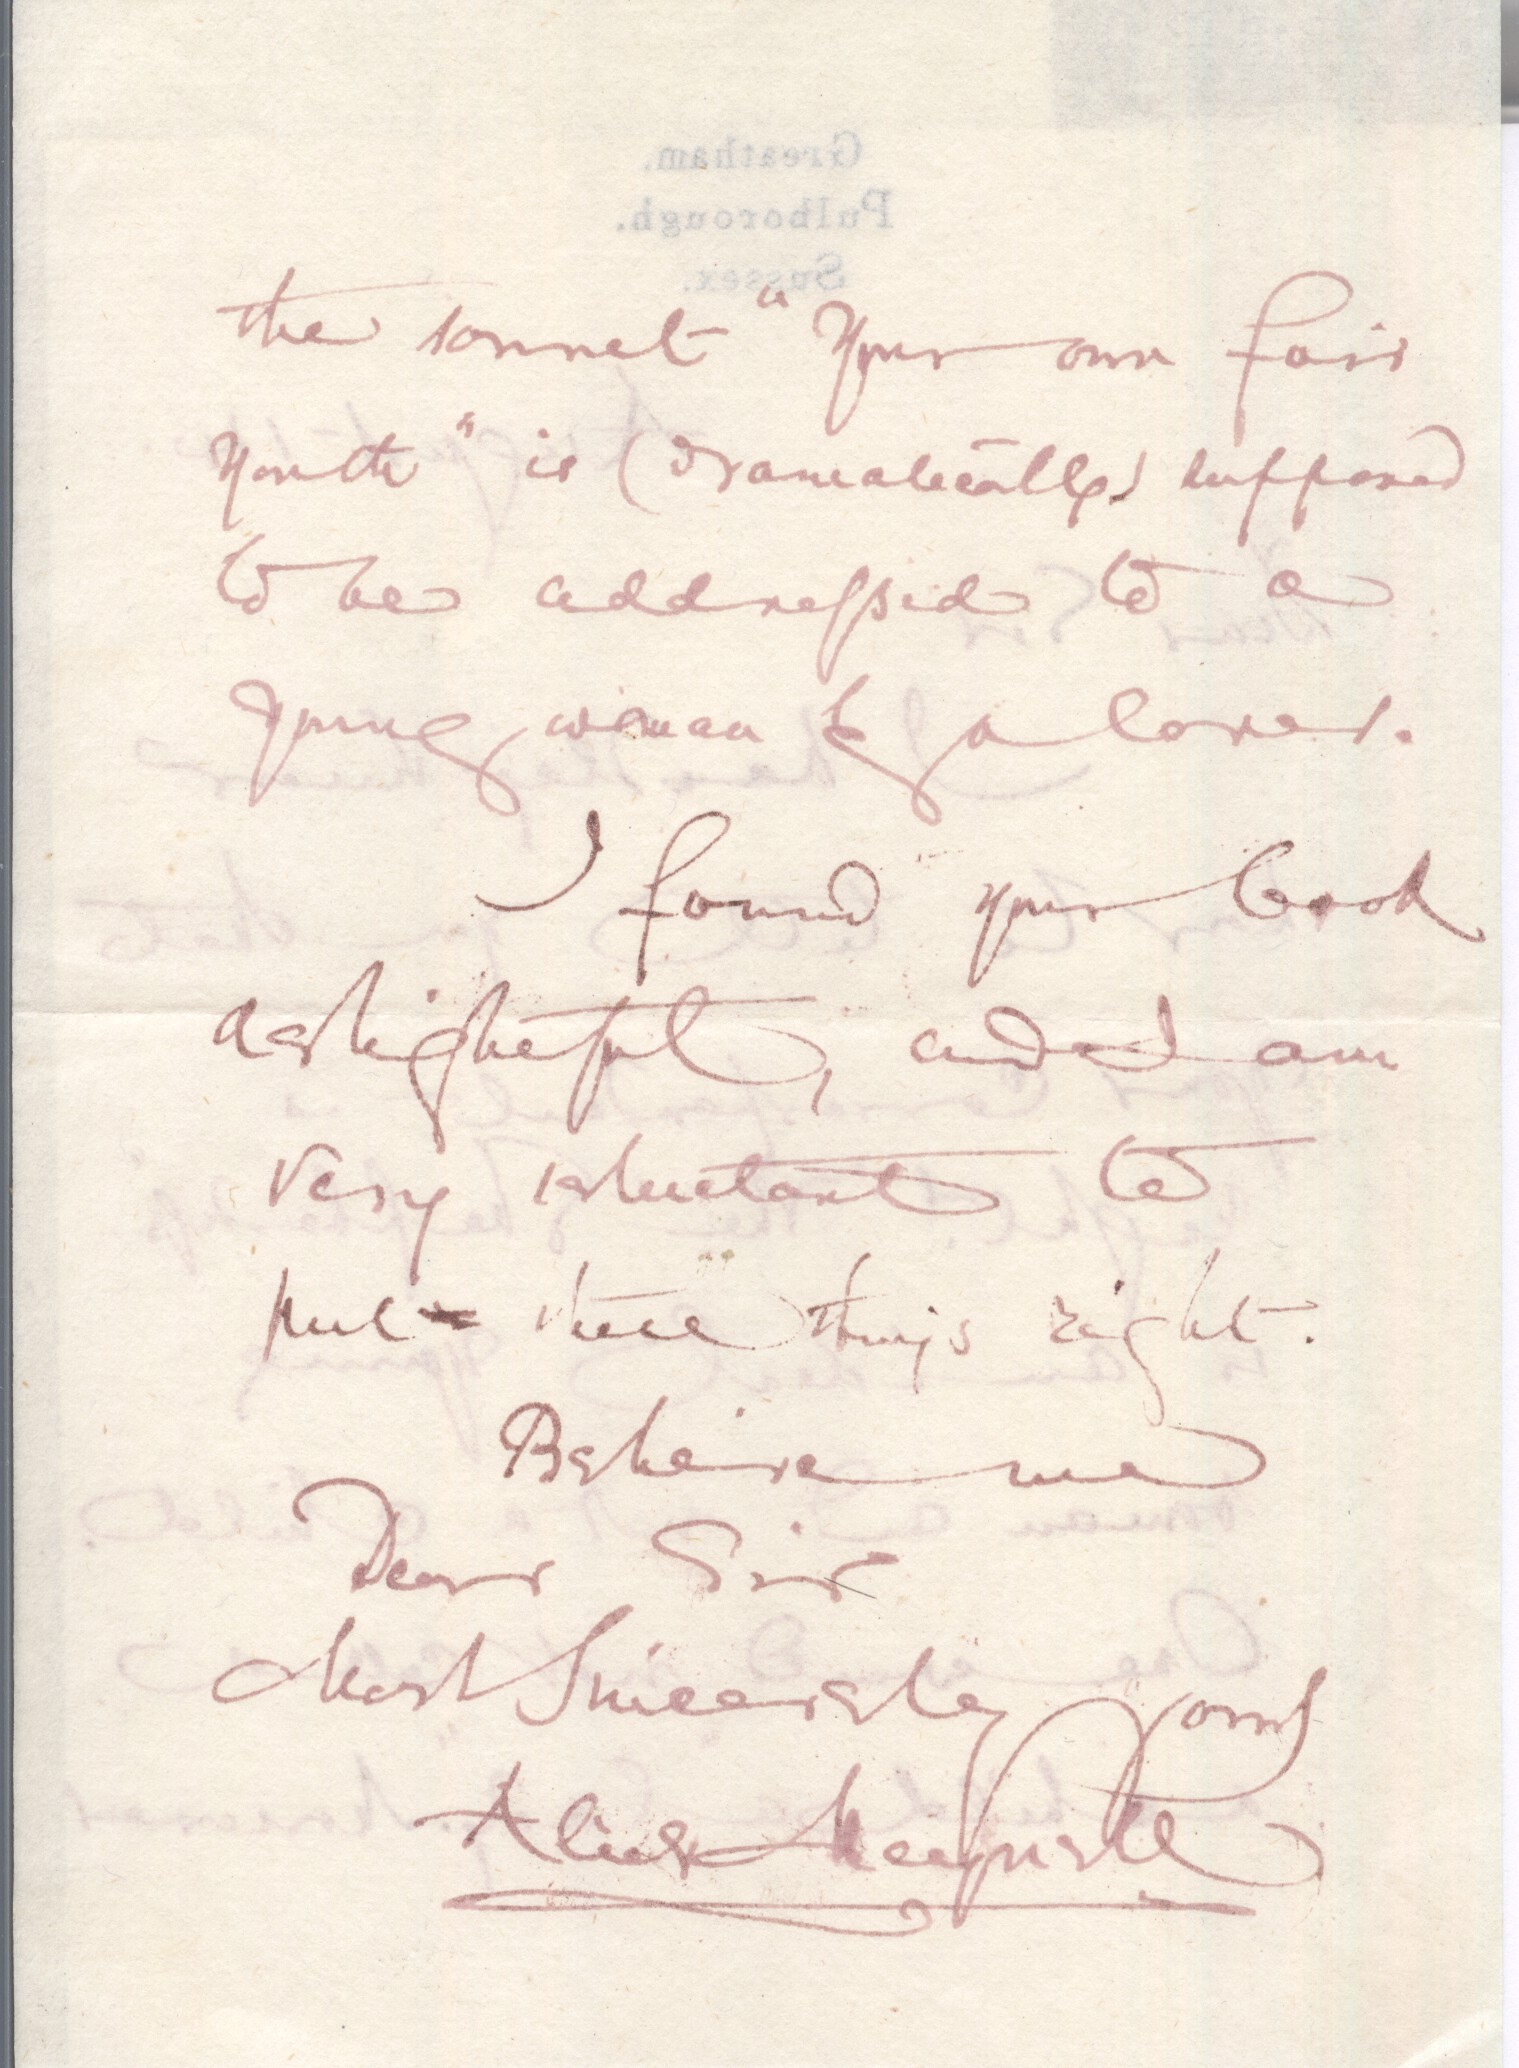 Greatham.
Pulborough.
Sussex.
the sonnet "Your own fair
youth" is (dramatically) supposed
to be addressed to a
young woman by a lover.
I found your book
delightful, and I am
very reluctant to
put these things right.
Believe me
Dear Sir
Most Sincerely yours
Alice Meynell